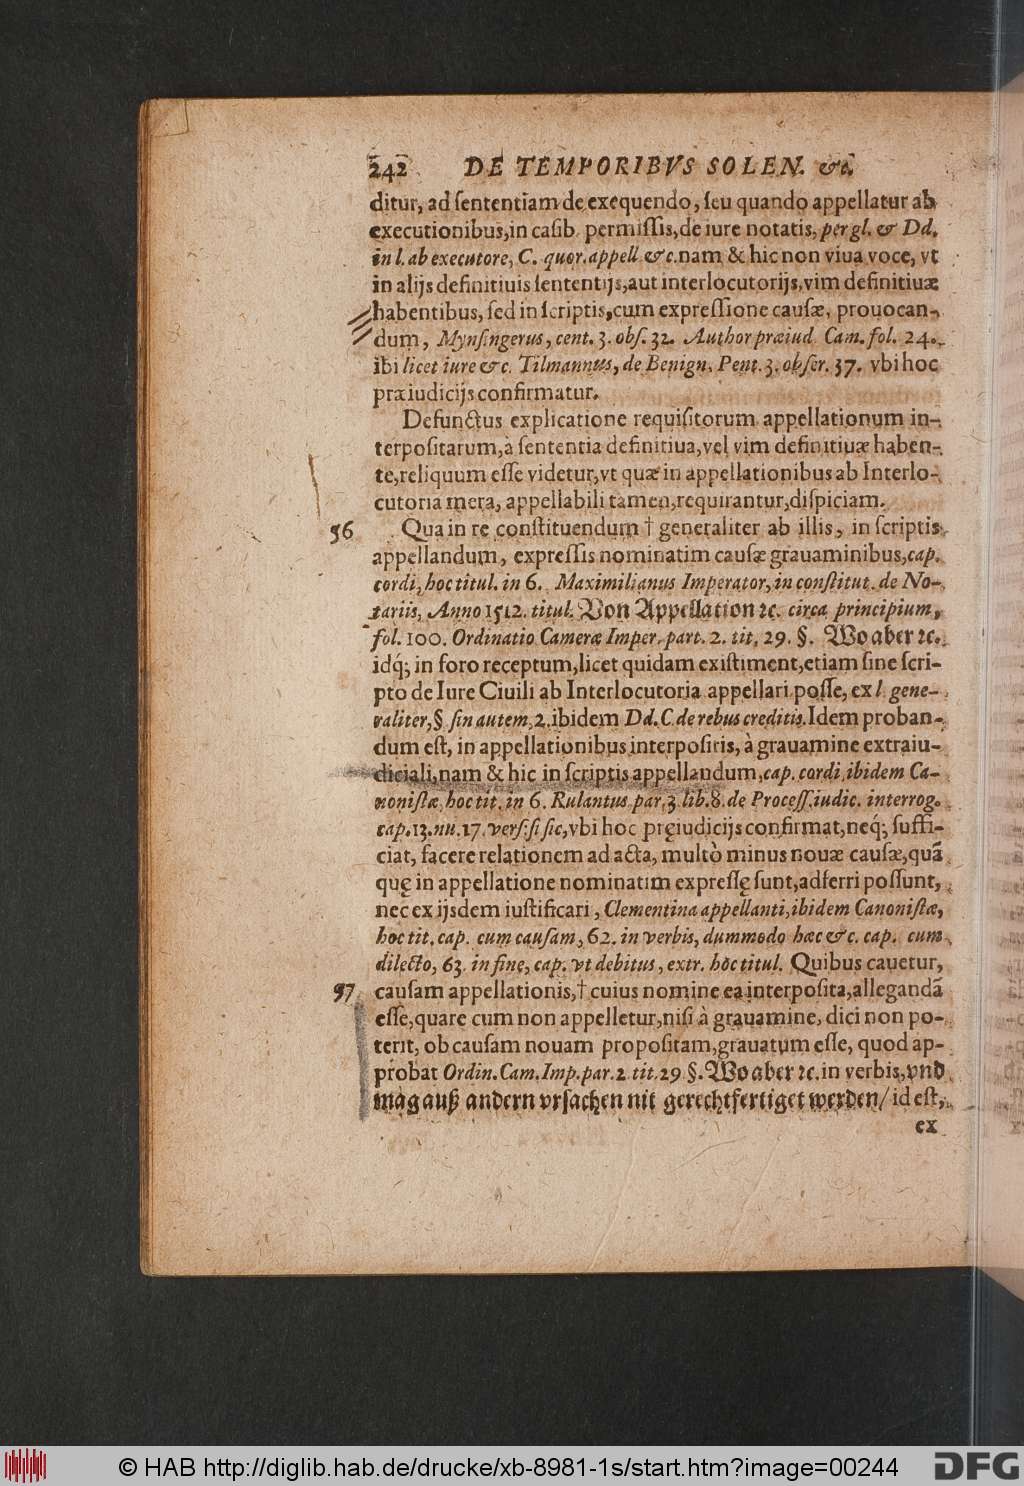 242 DE TEMPORIBVS SOLEN. &c.
ditur, ad ſententiam de exequendo, ſeu quando appellatur ab
executionibus, in caſib. permiſſis, de iure notatis, per gl. & Dd.
in l. ab executore, C. quor. appell &c. nam & hic non viua voce, vt
in alijs definitiuis ſententijs, aut interlocutorijs, vim definitiuæ
habentibus, ſed in ſcriptis, cum expreſſione cauſæ, prouocan-
dum, Mynſingerus, cent. 3. obſ. 32. Author præiud Cam. fol. 24.
ibi licet iure &c. Tilmannus, de Benign. Pent. 3. obſer. 37. vbi hoc
præiudicijs confirmatur.
Defunctus explicatione requiſitorum appellationum in-
terpoſitarum, à ſententia definitiua, vel vim definitiuæ haben-
te, reliquum eſſe videtur, vt quæ in appellationibus ab Interlo-
cutoria mera, appellabili tamen, requirantur, diſpiciam.
56 Qua in re conſtituendum † generaliter ab illis, in ſcriptis
appellandum, expreſſis nominatim cauſæ grauaminibus, cap.
cordi, hoc titul. in 6. Maximilianus Imperator, in conſtitut. de No-
tariis, Anno 1512. titul. Von Appellation ꝛc. circa principium,
fol. 100. Ordinatio Cameræ Imper. part. 2. tit. 29. §. Wo aber ꝛc.
idq́; in foro receptum, licet quidam exiſtiment, etiam ſine ſcri-
pto de Iure Ciuili ab Interlocutoria appellari poſſe, ex l. gene-
raliter, § ſin autem, 2. ibidem Dd. C. de rebus creditis. Idem proban-
dum eſt, in appellationibus interpoſitis, à grauamine extraiu-
diciali, nam & hic in ſcriptis appellandum, cap. cordi, ibidem Ca-
noniſtæ, hoc tit. in 6. Rulantus par. 3 lib. 8. de Proceſſ. iudic. interrog.
cap. 13. nu. 17. verſ. ſi ſic, vbi hoc pręiudicijs confirmat, neq́; ſuffi-
ciat, facere relationem ad acta, multò minus nouæ cauſæ, quã
quę in appellatione nominatim expreſſę ſunt, adferri poſſunt,
nec ex ijsdem iuſtificari, Clementina appellanti, ibidem Canoniſtæ,
hoc tit. cap. cum cauſam, 62. in verbis, dummodo hæc &c. cap. cum
dilecto, 63. in fine, cap. vt debitus, extr. hoc titul. Quibus cauetur,
57 cauſam appellationis, † cuius nomine ea interpoſita, allegandã
eſſe, quare cum non appelletur, niſi à grauamine, dici non po-
terit, ob cauſam nouam propoſitam, grauatum eſſe, quod ap-
probat Ordin. Cam. Imp. par. 2 tit. 29 §. Wo aber ꝛc. in verbis, vnd
mag auß andern vrſachen nit gerechtfertiget werden/ id eſt,
ex
© HAB http://diglib.hab.de/drucke/xb-8981-1s/start.htm?image=00244 DFG